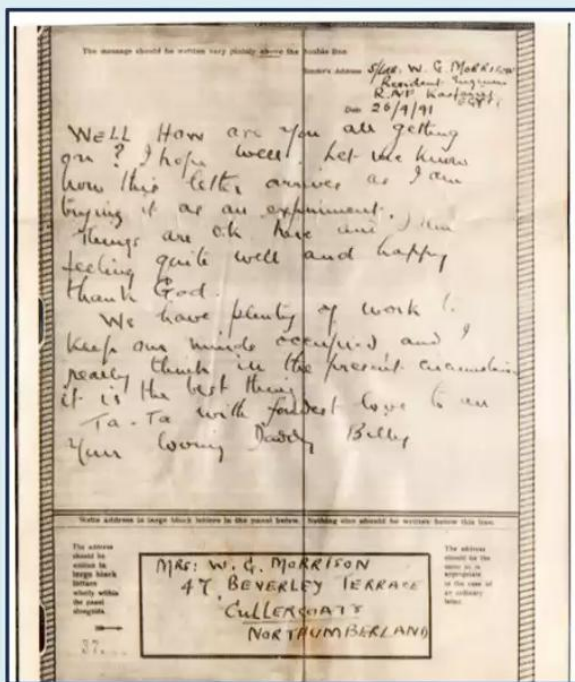 The message should be written very plainly above the double line.
Sender's Address S/Ldr: W. G. MORRISON
Resident Engineer
R.A.F Kasfareet
EGYPT
Date 26/9/41
WELL How are you all getting
on? I hope well. Let me know
how this letter arrives as I am
trying it as an experiment.
Things are ok here and I am
feeling quite well and happy
thank God.
We have plenty of work to
keep our minds occupied and I
really think in the present circumstances
it is the best thing
Ta-Ta with fondest love to all
Your loving Daddy Billy
Write address in large block letters in the panel below. Nothing else should be written below this line.
The address
should be
written in
large block
letters
wholly within
the panel
alongside.
MRS: W. G. MORRISON
47, BEVERLEY TERRACE
CULLERCOATS
NORTHUMBERLAND
The address
should be the
same as is
appropriate
in the case of
an ordinary
letter.
37